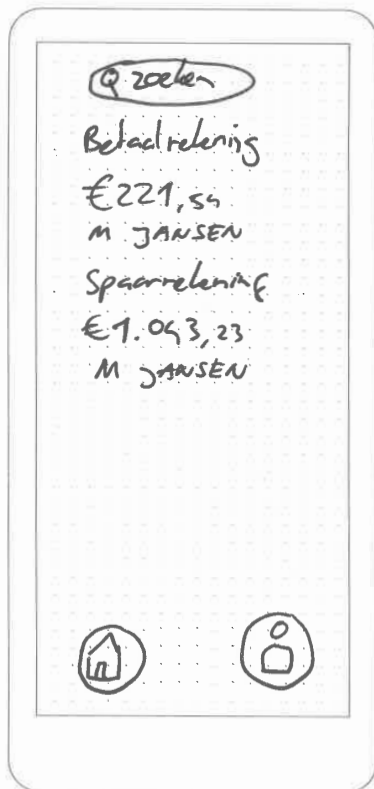 zoeken
Betaalrekening
€221,54
M JANSEN
Spaarrekening
€1.043,23
M JANSEN